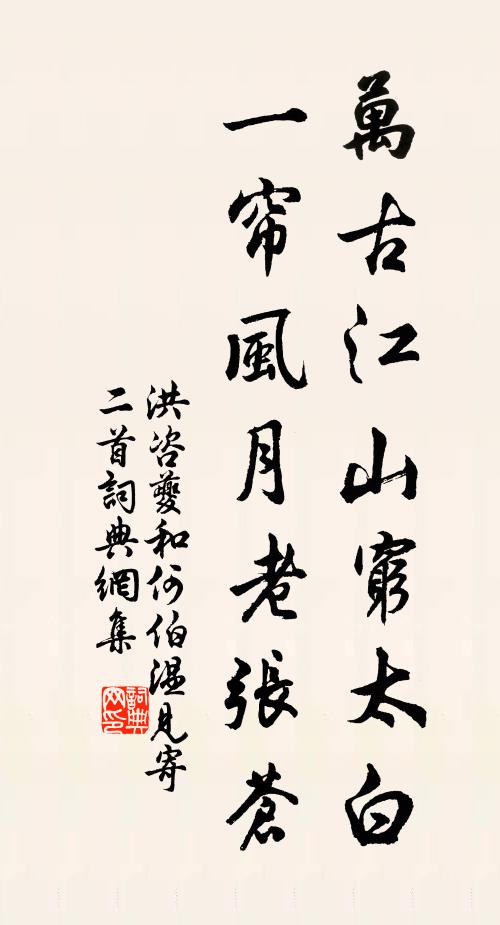 萬古江山窮太白
一帘風月老張蒼
洪咨夔和何伯温見寄
二首詞典網集
詞典网印